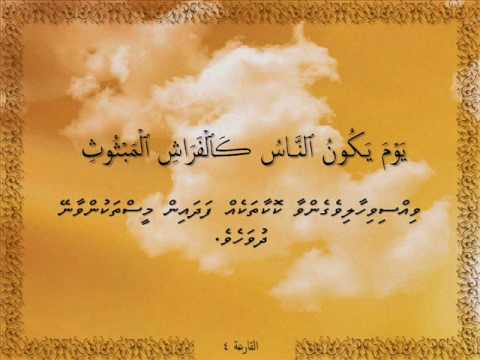 يَوْمَ يَكُونُ ٱلنَّاسُ كَٱلْفَرَاشِ ٱلْمَبْثُوثِ
ވިއްސިވިހާލިވެގެންވާ ކޮކާތަކެއް ފަދައިން މީސްތަކުންވާނޭ
ދުވަހެވެ.
القارعة ٤